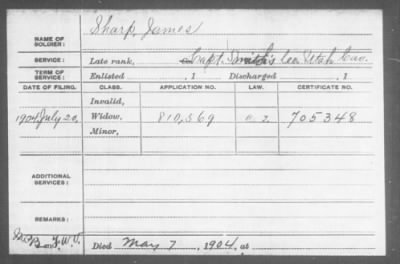 NAME OF SOLDIER: Sharp, James
SERVICE: Late rank, Capt. Smith's Co. Utah Cav.
TERM OF SERVICE: Enlisted , 1 Discharged , 1
DATE OF FILING. CLASS. APPLICATION NO. LAW. CERTIFICATE NO.
Invalid,
1904 July 20, Widow, 810,569 705348
Minor,
ADDITIONAL SERVICES:
REMARKS:
Died May 7, 1904, at